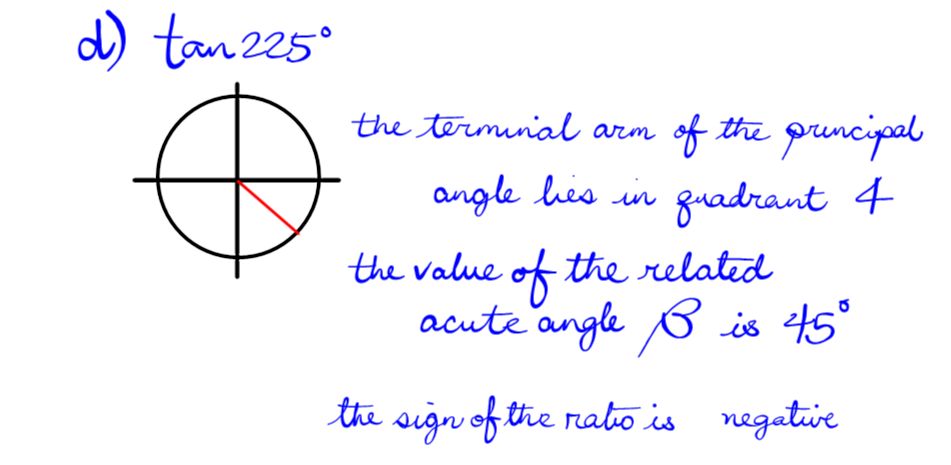 d) tan 225°
the terminal arm of the principal
angle lies in quadrant 4
the value of the related
acute angle β is 45°
the sign of the ratio is negative